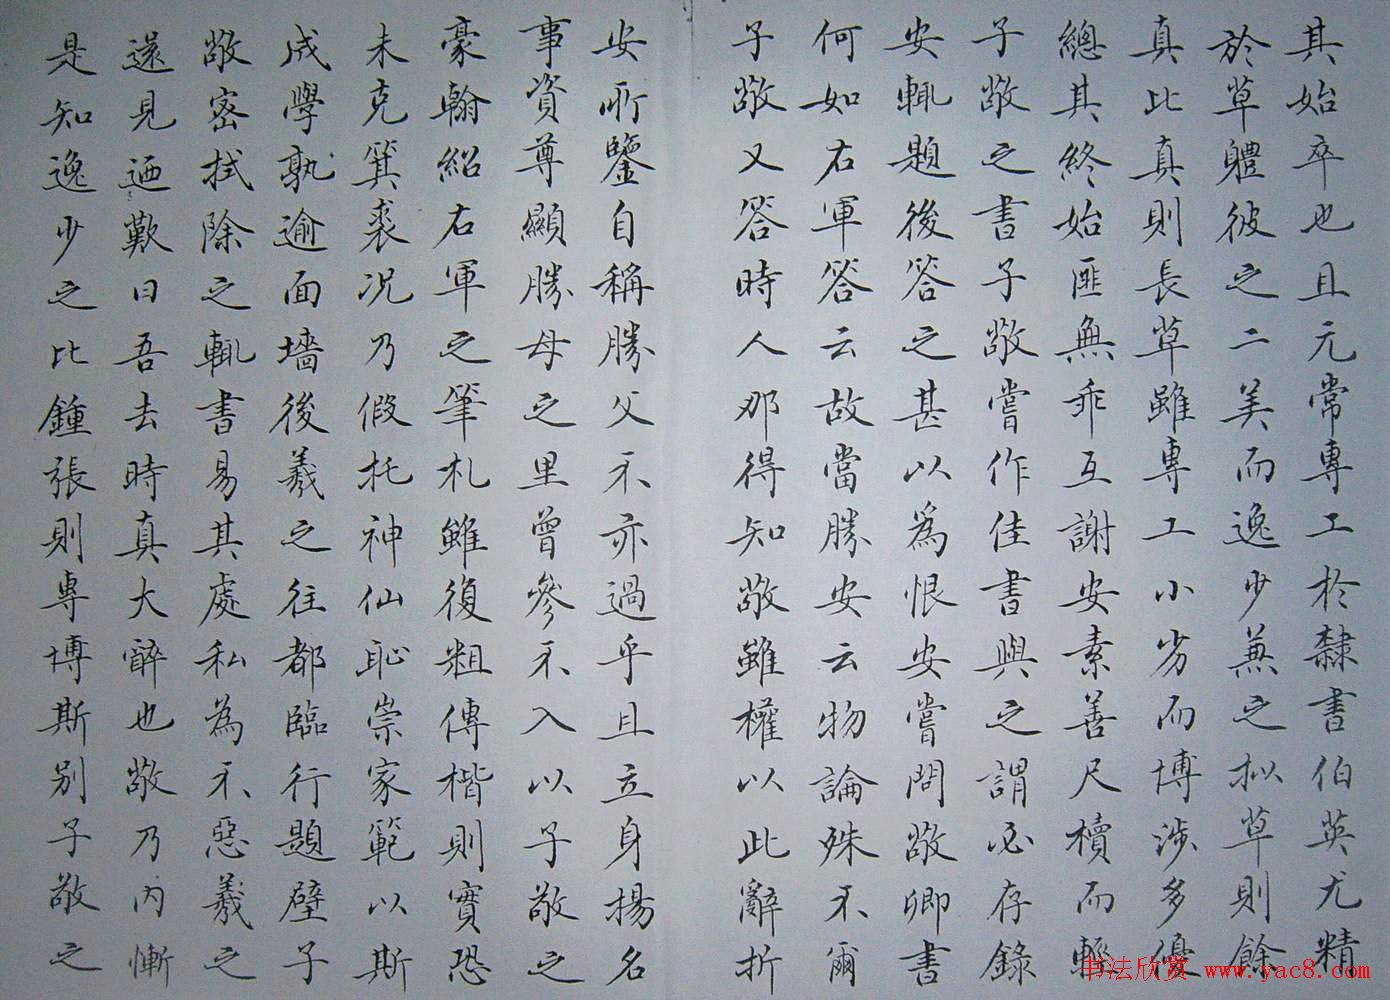 其始卒也且元常專工於隸書伯英尤精
於草體彼之二美而逸少兼之拟草則餘
真比真則長草雖專工小劣而博涉多優
總其終始匪無乖互謝安素善尺櫝而輕
子敬之書子敬嘗作佳書與之謂必存錄
安輒題後答之甚以為恨安嘗問敬卿書
何如右軍答云故當勝安云物論殊不爾
子敬又答時人那得知敬雖權以此辭折
安所鑒自稱勝父不亦過乎且立身揚名
事資尊顯勝母之里曾參不入以子敬之
豪翰紹右軍之筆札雖復粗傳楷則實恐
未克箕裘况乃假托神仙恥崇家範以斯
成學孰逾面墻後羲之往都臨行題壁子
敬密拭除之輒書易其處私為不惡羲之
還見迺歎曰吾去時真大醉也敬乃内慚
是知逸少之比鍾張則專博斯别子敬之
书法欣赏 www.yac8.com